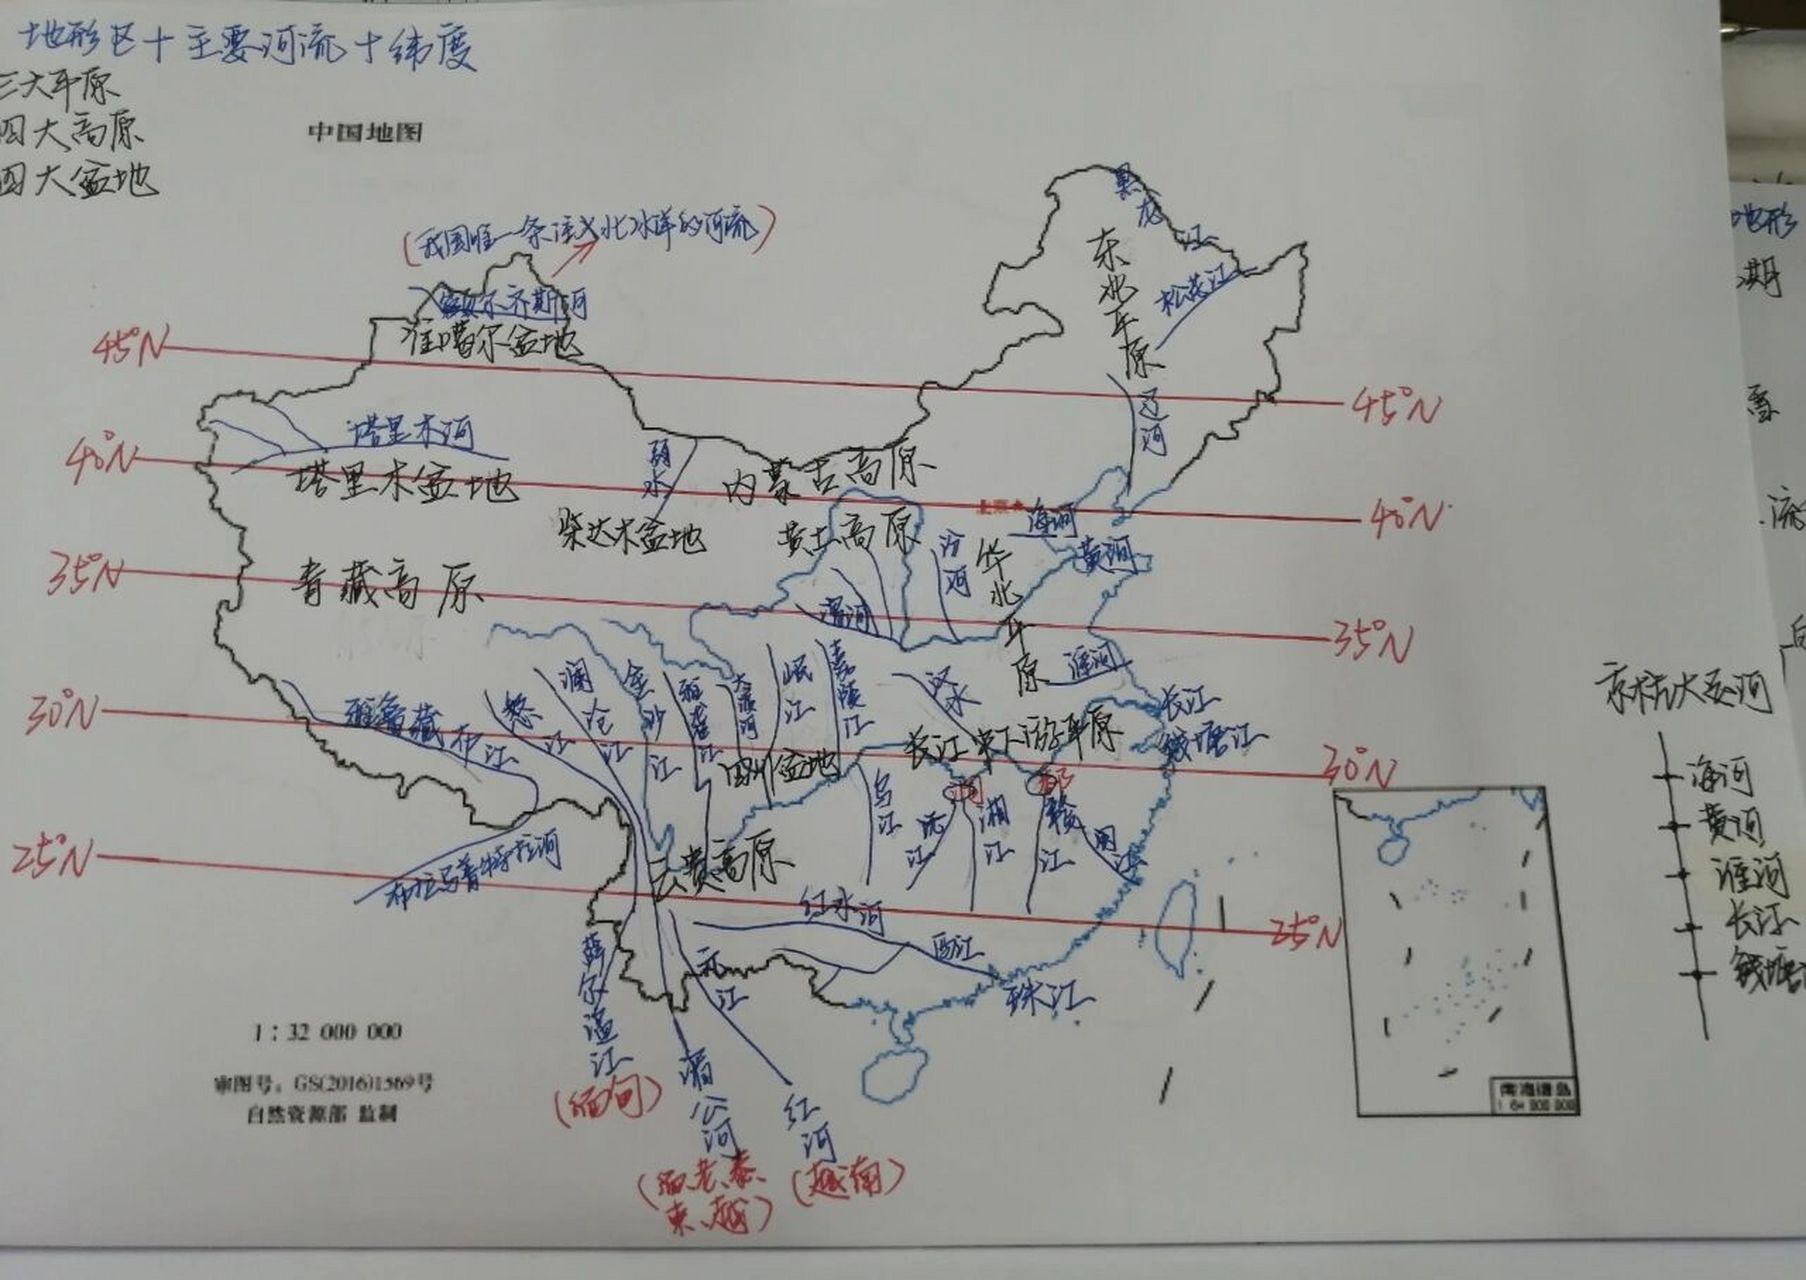 地形区+主要河流+纬度
三大平原
四大高原
四大盆地
中国地图
(我国唯一一条注入北冰洋的河流)
额尔齐斯河
准噶尔盆地
黑龙江
东北平原
松花江
45°N
45°N
辽河
塔里木河
塔里木盆地
弱水
内蒙古高原
40°N
40°N
北京
海河
柴达木盆地
黄土高原
汾河
华北平原
黄河
35°N
35°N
青藏高原
渭河
淮河
雅鲁藏布江
怒江
澜沧江
金沙江
雅砻江
大渡河
岷江
嘉陵江
汉水
长江
钱塘江
长江中下游平原
四川盆地
30°N
30°N
乌江
沅江
洞
湘江
鄱
赣江
闽江
布拉马普特拉河
云贵高原
25°N
25°N
红水河
西江
珠江
元江
萨尔温江
(缅甸)
湄公河
(缅、老、泰、
柬、越)
红河
(越南)
1:32 000 000
审图号:GS(2016)1569号
自然资源部 监制
南海诸岛
1:64 000 000
京杭大运河
海河
黄河
淮河
长江
钱塘
地形